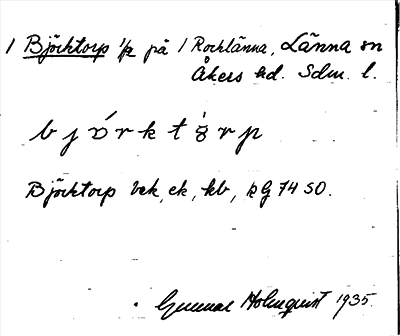 1 Björktorp 1/2 på 1 Rocklänna, Länna sn
Åkers hd. Sdm. l.
björktorp
Björktorp bek, ek, kb, kG 74 SO.
Gunnar Holmquist 1935